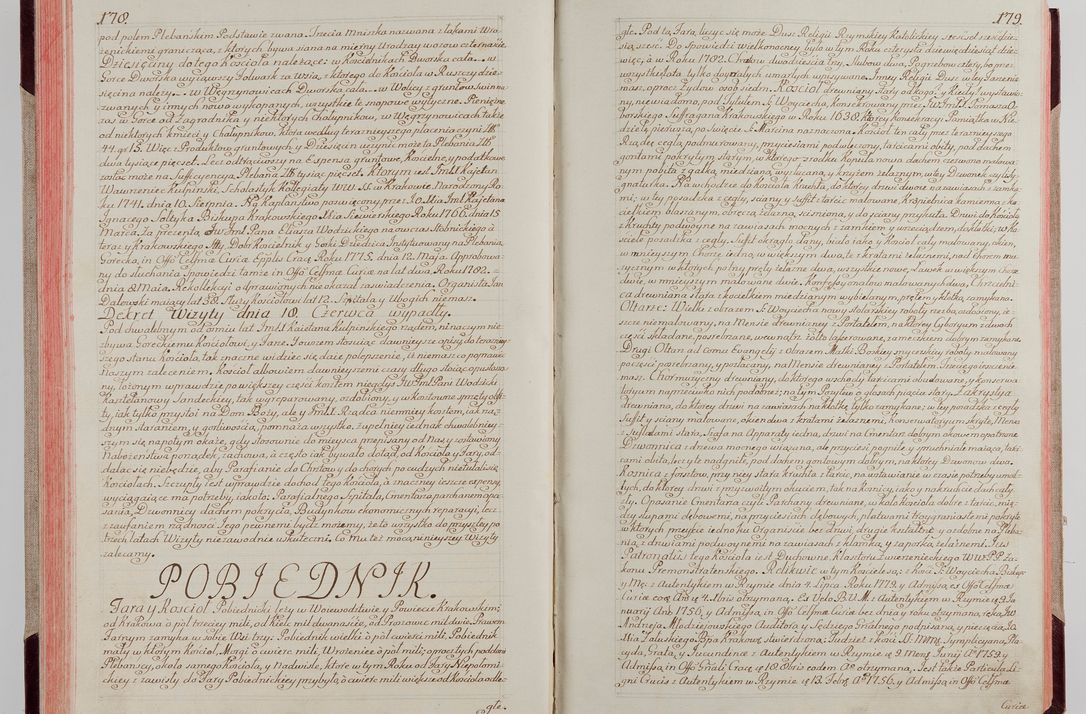 178.
pod polem Plebańskim Podstawie zwana. Trzecia Mniszka nazwana z łąkami Wro-
żenickiemi granicząca, z których bywa siana na mierny Urodzay wozow czternaście.
Dziesięciny do tego Kościoła należące: w Kościelnikach Dworska cała. w
Gorce Dworska wyiąwszy Folwark za Wsią, z którego do Kościoła w Ruszczy dzie-
sięcina należy. w Węgrzynowicach Dworska cała. w Wolicy z gruntow
zwanych y innych nowo wykopanych, wszystkie te snopowe wytyczne. Pieniężne
zaś w Gorce od Zagrodnika y niektórych chałupnikow, w Węgrzynowicach także
od niektorych kmieci y Chałupnikow, ktora według teraznieyszego płacenia czyni
44. gr 15. Więc z Produktow gruntowych y Dziesięcin uczynić może ta Plebania
dwa tysiące pięcset. Lecz odtrąciwszy na Expensa gruntowe, Kościelne, y podatkowe
zostać może na Sufficyencyą Plebana tysiąc pięcset. którym jest Kajetan
Wawrzeniec Kulpinski, Scholastyk Kollegiaty WW. SS. w Krakowie. Narodzony Ro-
ku 1741. dnia 10. Sierpnia. Na Kapłanstwo poswięcony przez Kajetana
Ignacego Sołtyka Biskupa Krakowskiego Xcia Siewierskiego Roku 1766. dnia 15
Marca. Za prezentą Pana Eliasza Wodzickiego naowczas Stolnickiego a
teraz y Krakowskiego Dobr Kościelnik y Gorki Dziedzica Instytuowany na Plebanią
Gorecką, in Offo Celsmæ Curiæ Epplis Cracę Roku 1775. dnia 12. Maja. Approbowa-
ny do słuchania Spowiedzi tamże in Offo Celsmæ Curiæ na lat dwa Roku 1782.
dnia 8. Maia. Rekollekcyi odprawionych nie okazał zaświadczenia. Organista Jan
Dąlowski maiący lat 38. służy Kościołowi lat 12. Szpitala y Ubogich niemasz.
Dekret Wizyty dnia 18. Czerwca wypadły.
Pod chwalebnym od osmiu lat Kaietana Kulpinskiego rządem, ni na czym nie
zbywa Goreckiemu Kościołowi y Farze. Owszem stosuiąc dawnieysze opisy do teraznie-
szego stanu Kościoła, tak znaczne widzieć się daie polepszenie, iż niemasz co poprawiać
Naszym zaleceniem. Kościoł albowiem dawnieyszemi czasy długo stoiąc opustosza-
ły, łożonym wprawdzie po większey części kosztem niegdyś Pani Wodzicki
Kasztelanowy Sandeckiey, tak wyreparowany, ozdobiony, y w kosztowne sprzęty obfi-
ty, iak tylko przystoi na Dom Boży, ale y Rządca niemniey kosztem, iak na-
lnym staraniem, y gorliwością, pomnaża wszystko, zupełniey iednak chwalebniey-
szym się napotym okaże, gdy stosownie do mieysca przepisany od Nas y zostawiony
Nabożenstwa porządek, zachowa, a często iak bywało dotąd, od Kościoła y Fary, od-
dalać się niebędzie, aby Parafianie do Chrztow y do chorych po cudzych nietułali się
Kościołach. Szczupły iest wprawdzie dochod Tego Kościoła, a znaczney ieszcze expensy,
wyciągaiące ma potrzeby, iakoto: Parafialnego Szpitala, Cmentarza parchanem opa-
sania, Dzwonnicy dachem pokrycia, Budynkow ekonomicznych reparacyi, lecz
z zaufaniem rządności Jego pewnemi bydź możemy, że to wszystko do przyszłey po
trzech latach Wizyty niezawodnie uskuteczni. Co mu też mocą ninieyszey Wizyty
zalecamy.
POBIEDNIK.
Fara y Kościoł Pobiednicki leży w Woiewodztwie y Powiecie Krakowskim;
od Krakowa o poł trzeciey mili, od Kielc mil dwanaście, od Proszowic mil dwie. Prawem
Farnym zamyka w sobie Wsi trzy: Pobiednik wielki o poł ćwierci mili, Pobiednik
mały w którym Kościoł, Murgi o ćwierć mili, Wrożeniec o poł mili; oprocz tych poddani
Plebanscy, około samego Kościoła, y Nadwiśle, ktore w tym Roku od Fary Niepołomi-
ckiey z zawisły do Fary Pobiednickiey przybyło, o ćwierć mili większe od Kościoła odle-
głe.
179.
głe. Pod tą Farą, liczyć się może Dusz Religii Rzymskiey Katolickiey sześćset sześćdzie-
siąt sześć. Do Spowiedzi wielkonocney było w tym Roku czterysta dziewięćdziesiąt dzie-
więć, a w Roku 1782. Chrztow dwadzieścia trzy, Slubow dwa, Pogrzebow cztery, bo przez
wszystkie lata tylko dorosłych umarłych wpisywano. Inney Religii Dusz w tey Farze nie
masz, oprocz Zydow osob siedm. Kościoł drewniany stary, od kogo? y kiedy? wystawio-
ny, niewiadomo, pod Tytułem S. Woyciecha, konsekrowany przez Tomasza O-
borskiego Suffragana Krakowskiego w Roku 1638. którey konsekracyi Pamiątka w Nie-
dzielę pierwszą, po Swięcie S. Marcina naznaczona. Kościoł ten cały przez teraznieyszego
Rządcę cegłą podmurowany, przyciesiami podwleczony, tarcicami obity, pod dachem
gontami pokrytym starym, w którego srodku Kopuła nowa dachem czerwono malowa-
nym pobita z gałką miedzianą wyzłacaną, y krzyżem żelaznym, w tey Dzwonek czyli Sy-
gnaturka. Na wchodzie do Kościoła Kruchta, do którey drzwi dwoie na zawiasach z zamka-
mi; w tey posadzka z cegły, sciany y sufit: tarcic malowane, Kropielnica kamienna, z ko-
ciełkiem blaszanym, obręczą żelazną, sciśnioną, y do sciany przykuta. Drzwi do Kościoła
z Kruchty podwoyne na zawiasach mocnych z zamkiem y wrzeciądzem, do kłotki; w Ko-
ściele posadzka z cegły, Sufit okrągło dany, biało iako y Kościoł cały malowany, okien,
w mnieyszym Chorze iedno, w większym dwa, te z kratami żelaznemi, nad Chorem mu-
zycznym w których potny pręty żelazne dwa, wszystkie nowe, Ławek w większym Chorze
dwie, w mnieyszym malowane dwie, Konfessyonałow malowanych dwa, Chrzcielni-
ca drewniana stara z kociełkiem miedzianym wybielanym, prętem y kłotką zamykana.
Ołtarze: Wielki z obrazem S. Woyciecha nowy stolarskiey roboty rzezbą, ozdobiony, ie-
szcze niemalowany, na Mensie drewnianey z Portatelem, na którey Cyboryum z dwoch
części składane, posrebrzane, wewnątrz żołto lakierowane, z zameczkiem dobrym zamykane.
Drugi Ołtarz ad Cornu Evangelij z Obrazem Matki Boskiey snycerskiey roboty malowany
po części posrebrzany, y pozłacany, na Mensie drewnianey z Portatelem. Trzeciego ieszcze nie-
masz. Chor muzyczny drewniany, do którego wschody tarcicami obudowane, y konserwa
toryum naprzeciwko nich podobne; na tym Pozytew o głosach pięciu stary. Zakrystya
drewniana, do którey drzwi na zawiasach na kłotkę tylko zamykane; w tey posadzka z cegły
Sufit y sciany malowane, okien dwa z kratami żelaznemi, konserwatoryum skryte, Mensa
z szufladami stara, szafa na Apparaty iedna, drzwi na Cmentarz dobrym okowem opatrzone.
Dzwonnica z drzewa mocnego wiązana, ale przyciesi pogniłe y spruchniałe maiąca, tarci-
cami obita, ieszcze na szczycie, pod dachem gontowym dobrym, na którey Dzwonow dwa.
Kośnica z forsztow, przy niey stara kruchta z tarcic, na wstawianie w czasie potrzeby umar-
łych, do którey drzwi z przyzwoitym okuciem, tak na Kośnicy, iako y na kruchcie dach cały
zły. Opasanie Cmentarza czyli Parchany drewniane, w koło Kościoła dobre z tarcic, mię-
dzy słupami dębowemi, na przyciesiach dębowych, płatwami troygraniastemi pokryte
w których przeyście iedno ku Organiście bez drzwi, drugie kształtne, y ozdobne na Pleba-
nią, z drzwiami podwoynemi na zawiasach z klamką y zaporką żelaznemi. Jus
Patronatus tego Kościoła iest Duchowne Klasztoru Zwierzynieckiego WW. PP. Za-
konu Premonstratenskiego. Relikwie w tym Kościele są: z Kości S. Woyciecha Biskupa
y Męcz. z Autentykiem w Rzymie dnia 4. Lipca Roku 1773. y Admissą ex Offo Celsmæ
Curiæ coæ Aoe 4. Xbris otrzymaną. Ex Velo B.V.M. z Autentykiem w Rzymie 9 Ja-
nuarij Anõ 1756, y Admissą in Offo Celsmæ Curiæ bez dnia y roku otrzymaną, ręką
Andrzeja Młodziejowskiego Auditora y Sędziego Gralnego podpisaną, y pieczęcią
Xcia Załuskiego Bpa Krakow. stwierdzoną. Tudzież z kości SS. MM. Symplicyana, Pla-
cyda, Grata, y Jucundena z Autentykiem w Rzymie 9. Mense Junij Ao 1753. y
Admissą in Offo Grali Cracę 18. 8bris eodem Ao otrzymaną. Jest także Particula Li-
gni Crucis z Autentykiem w Rzymie 13. Febr. Ao 1756. y Admissą in Offo Celsmæ
Curiæ